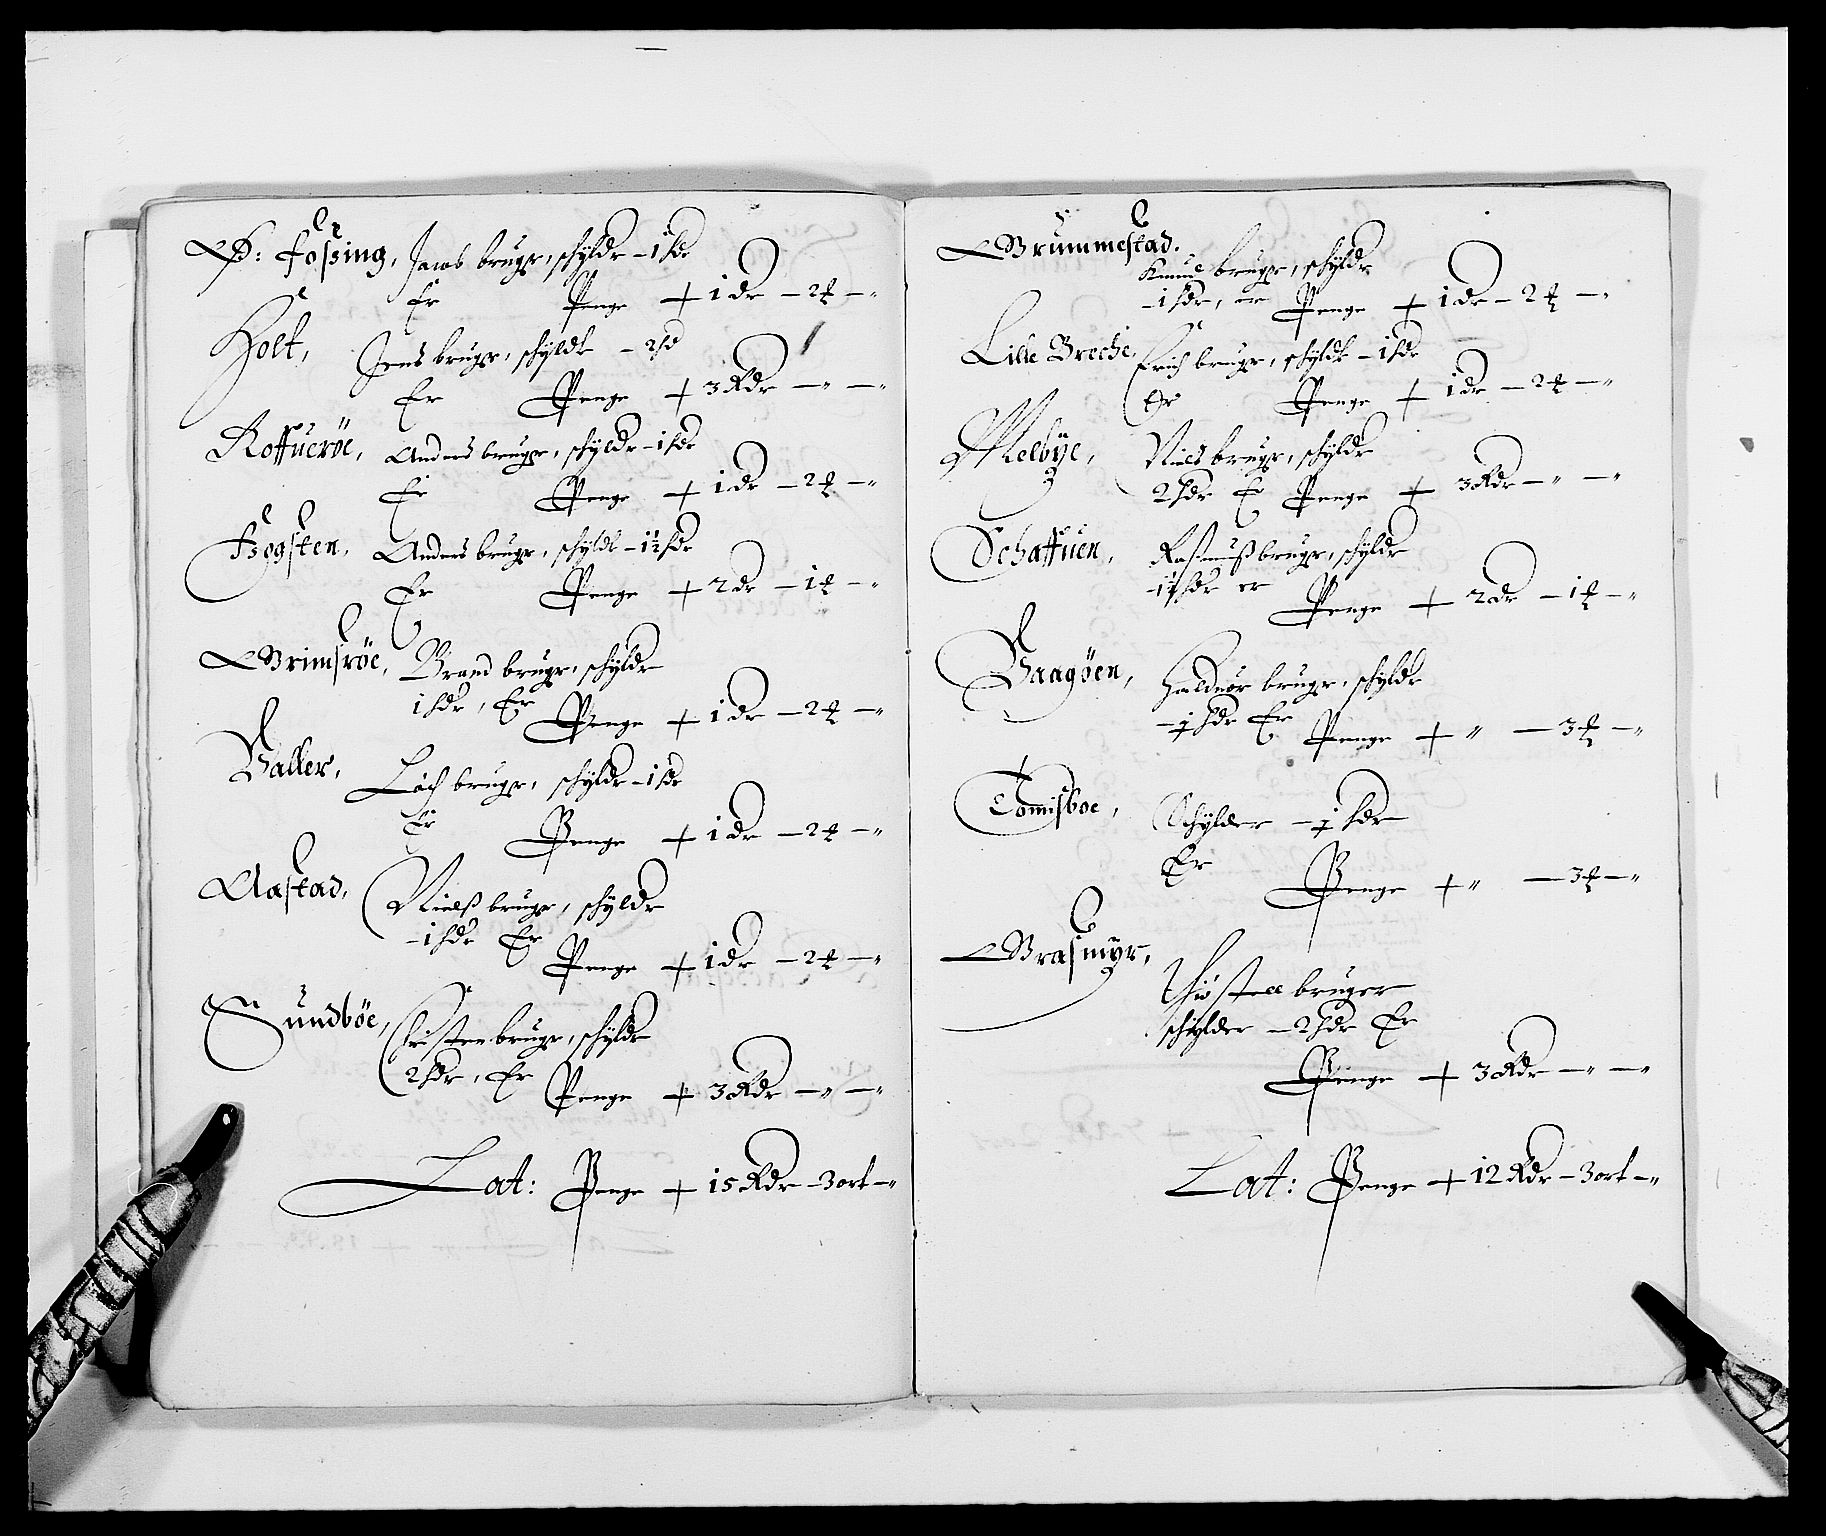 Ø: fossing, Jacob bruger, schylder – 1 hdr
Er Penge + 1 dr – 2 ort – "
Holt, Jens bruger, schylder – 2 hd
Er Penge + 3 Rdr – " – "
Roffuerøe, Anders bruger, schylder – 1 hdr
Er Penge + 1 dr – 2 ort – "
Fogsten, Anders bruger, schylder – 1½ hdr
Er Penge + 2 dr – 1 ort – "
Brimsrøe, Brand bruger, schylder
1 hdr, Er Penge + 1 dr – 2 ort – "
Valler, bruger, schylder – 1 hdr
Er Penge + 1 dr – 2 ort – "
Aastad, Nielß bruger, schylder
– 1 hdr Er Penge + 1 dr – 2 ort – "
Sundbøe, Christen bruger, schylder
2 hdr, Er Penge + 3 Rdr – " – "
Lat: Penge + 15 Rdr – 3 ort – "
Brummestad. Knud bruger, schylder
– 1 hdr, er Penge + 1 dr – 2 ort – "
Lille Breche, Erich bruger, schylder – 1 hdr
Er Penge + 1 dr – 2 ort – "
Melbye, Niels bruger, schylder
2 hdr Er Penge + 3 Rdr – " – "
Schaffuen, Rasmuß bruger, schylder
– 1½ hdr er Penge + 2 dr – 1 ort – "
Vaagøen, Haldvor bruger, schylder
– ½ hdr Er Penge + " – 3 ort – "
Tomisboe, Schylder – ½ hdr
Er Penge + " – 3 ort – "
Brasmyr,
bruger
schylder – 2 hdr Er
Penge + 3 Rdr – " – "
Lat: Penge + 12 Rdr – 3 ort – "